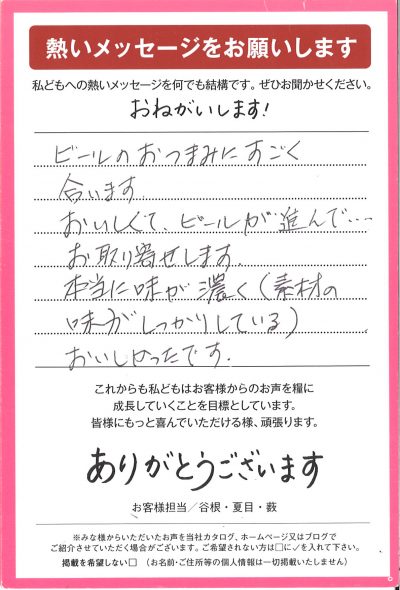 熱いメッセージをお願いします
私どもへの熱いメッセージを何でも結構です。ぜひお聞かせください。
おねがいします!
ビールのおつまみにすごく
合います.
おいしくて、ビールが進んで…
お取り寄せします.
本当に味が濃く(素材の
味がしっかりしている)
おいしかったです.
これからも私どもはお客様からのお声を糧に
成長していくことを目標としています。
皆様にもっと喜んでいただける様、頑張ります。
ありがとうございます
お客様担当/谷根・夏目・薮
※みな様からいただいたお声を当社カタログ、ホームページ又はブログで
ご紹介させていただく場合がございます。ご希望されない方は□に✓を入れて下さい。
掲載を希望しない□ (お名前・ご住所等の個人情報は一切掲載いたしません)